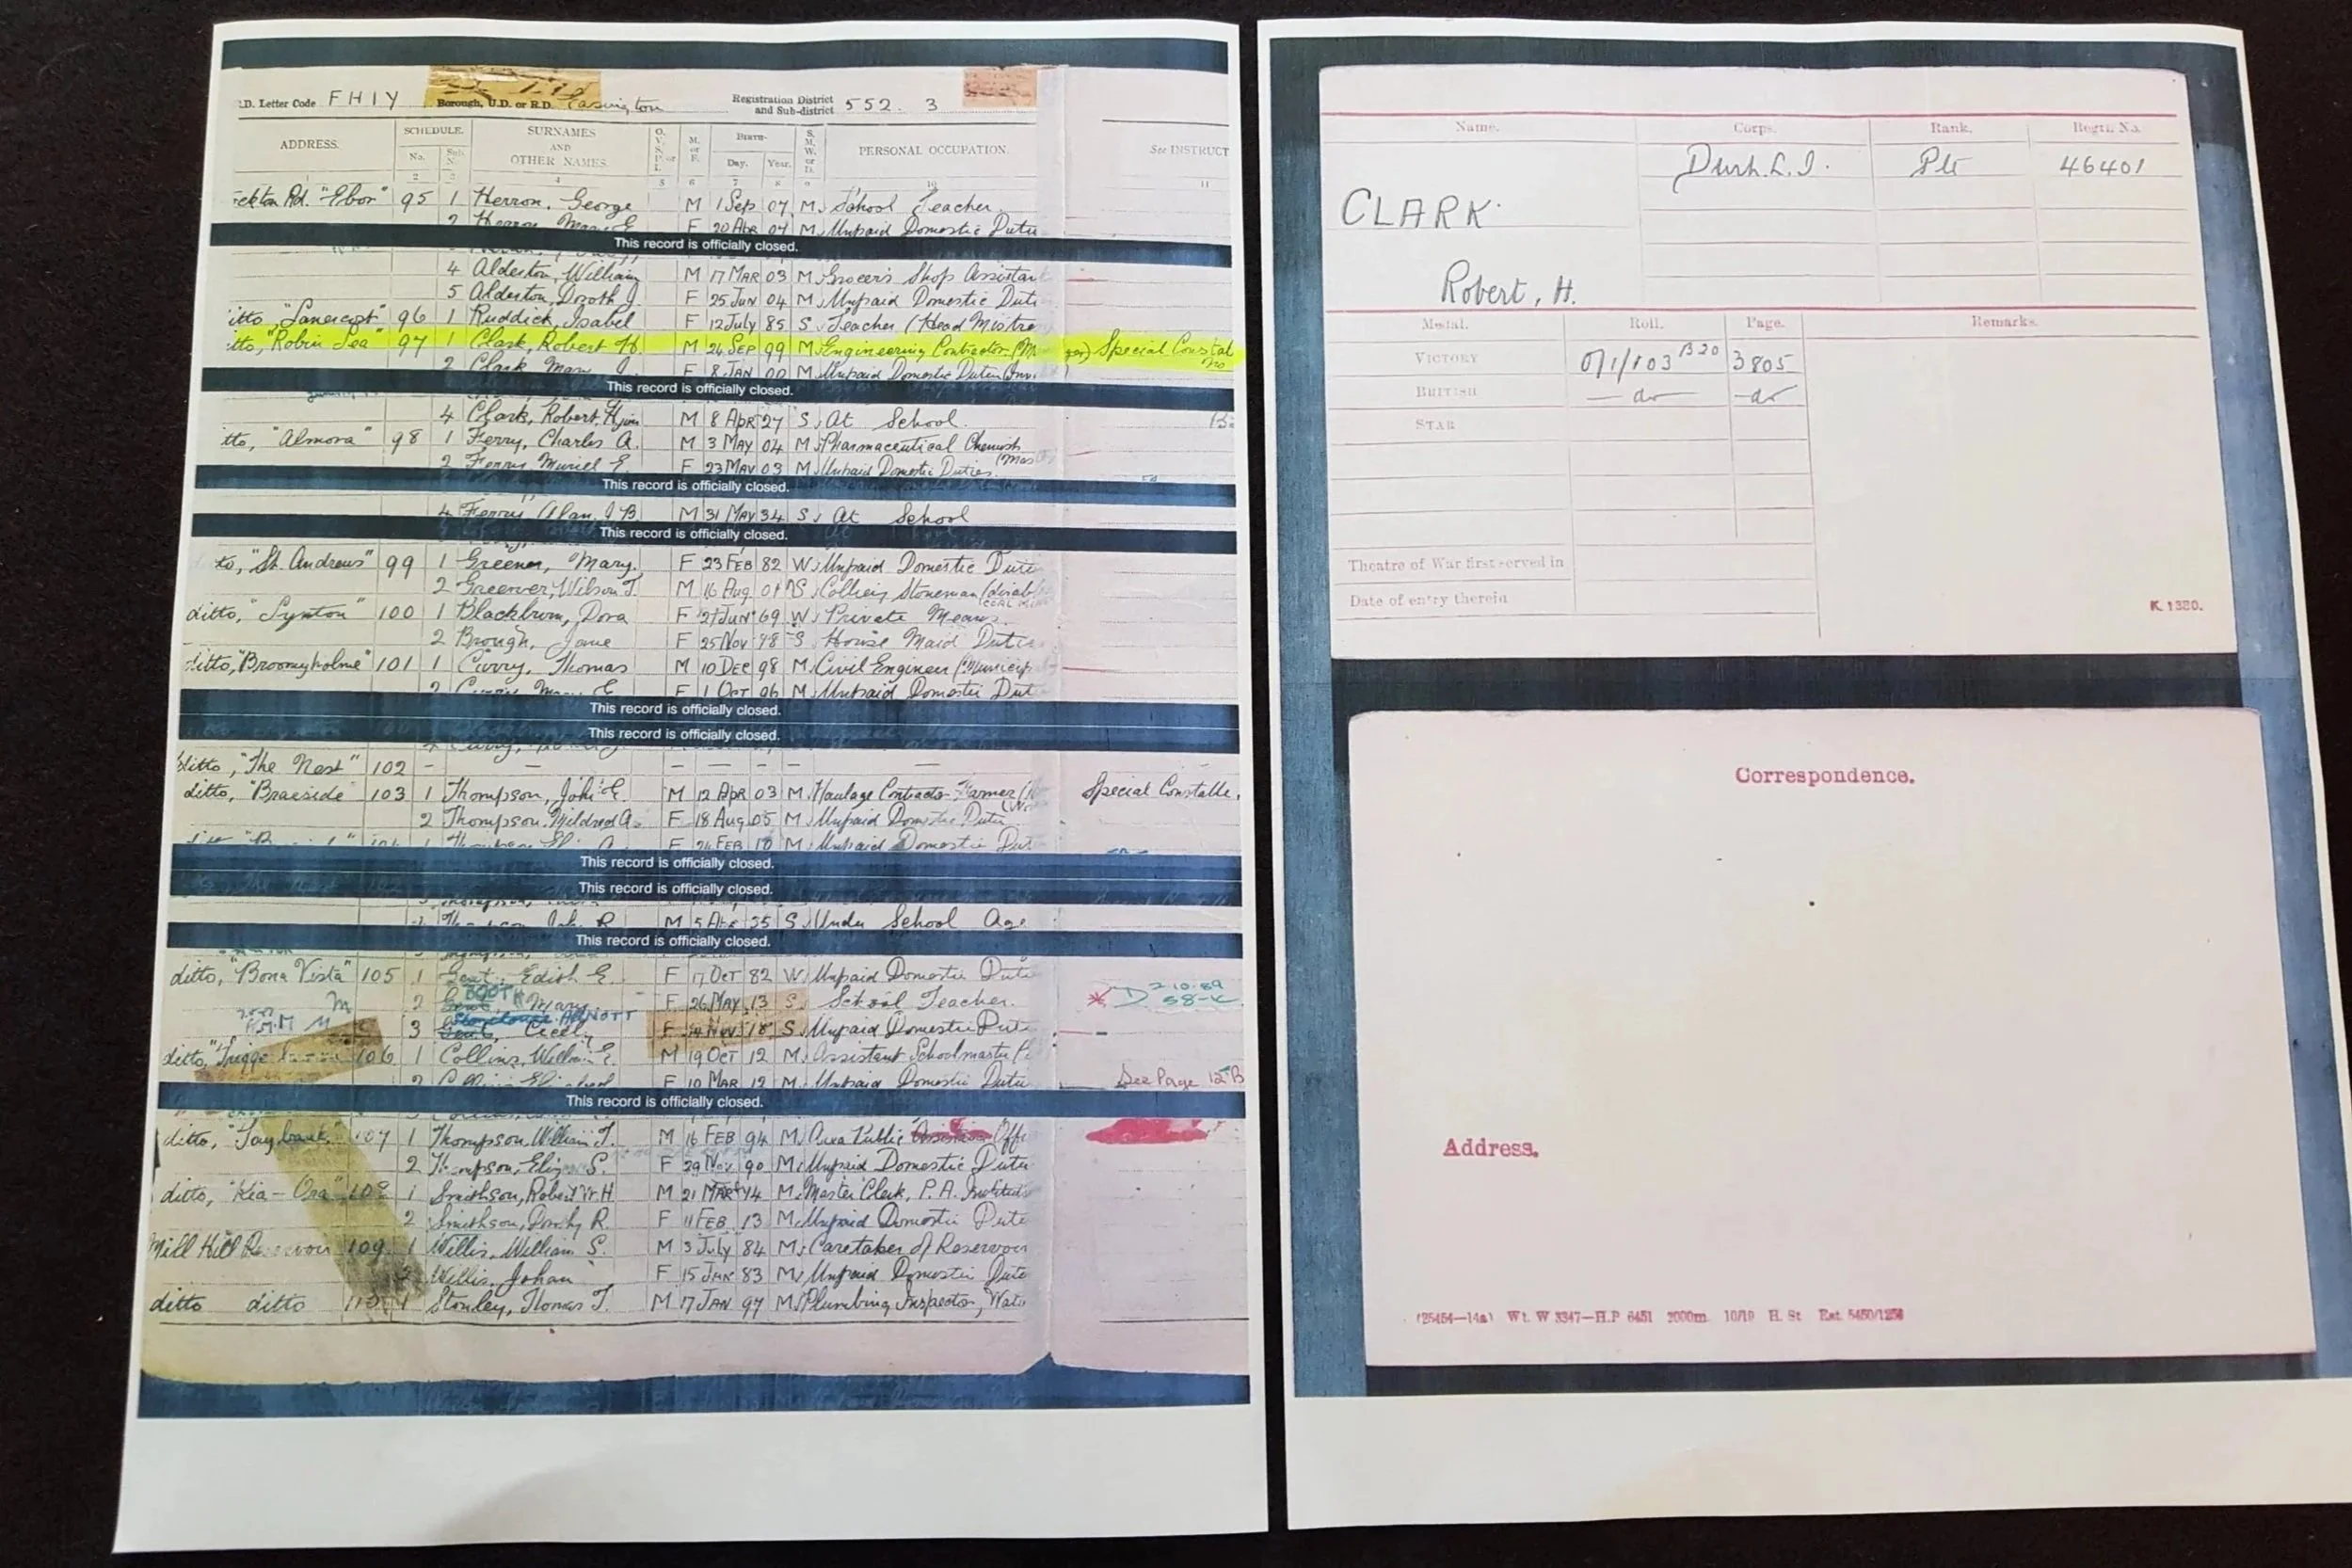 .D. Letter Code FHIY Borough, U.D. or R.D. Easington Registration District and Sub-district 552. 3
ADDRESS. SCHEDULE. No. Sub. No. SURNAMES AND OTHER NAMES. O. V. S. P. or I. M. or F. BIRTH- Day. Year. S. M. W. or D. PERSONAL OCCUPATION. See INSTRUCT
1 2 3 4 5 6 7 8 9 10 11
ckton Rd. "Ebor" 95 1 Herron, George M 1 Sep 07 M School Teacher
2 Herron, Mary E. F 20 Apr 07 M Unpaid Domestic Dutie
This record is officially closed.
4 Alderton, William M 17 MAR 03 M Grocer's Shop Assistant
5 Alderton, Doroth J. F 25 JUN 04 M Unpaid Domestic Duti
itto "Lanercost" 96 1 Ruddick, Isabel F 12 July 85 S Teacher (Head Mistre
itto, "Robin Lea" 97 1 Clark, Robert H. M 24 SEP 99 M Engineering Contractor (M ger) Special Constab
2 Clark Mary J. F 8 JAN 00 M Unpaid Domestic Duties
This record is officially closed.
4 Clark, Robert H jun M 8 APR 27 S At School.
tto, "Almora" 98 1 Ferry, Charles A. M 3 MAY 04 M Pharmaceutical Chemist
2 Ferry Muriel E. F 23 MAY 03 M Unpaid Domestic Duties.
This record is officially closed.
4 Ferry Alan J B. M 31 MAY 34 S At School
This record is officially closed.
to, "St. Andrews" 99 1 Greener, Mary. F 23 FEB 82 W Unpaid Domestic Dutie
2 Greener, Wilson T. M 16 Aug 01 S Colliery Stoneman (disabl
ditto, "Synton" 100 1 Blackburn, Dora F 27 Jun 69 W Private Means.
2 Brough, Jane F 25 Nov 98 S House Maid Dutie
ditto, "Broomyholme" 101 1 Curry, Thomas M 10 DEC 98 M Civil Engineer (Municip
2 Curry Mary E. F 1 OCT 96 M Unpaid Domestic Dut
This record is officially closed.
This record is officially closed.
ditto, "The Nest" 102 - — — — — — —
ditto, "Braeside" 103 1 Thompson, John E. M 12 APR 03 M Haulage Contractor Farmer Special Constable.
2 Thompson. Mildred A. F 18 Aug 05 M Unpaid Domestic Dutie
F 24 FEB 10 M Unpaid Domestic Dut
This record is officially closed.
This record is officially closed.
M 5 Apr 35 S Under School Age
This record is officially closed.
ditto, "Bona Vista" 105 1 Gent, Edith E. F 17 OCT 82 W Unpaid Domestic Dutie
2 BOOTH Mary F 26 MAY 13 S School Teacher.
3 ARNOTT Cecily F 14 Nov 18 S Unpaid Domestic Dut
ditto, 106 1 Collins, William E. M 19 OCT 12 M Assistant Schoolmaster
2 F 10 MAR 12 M Unpaid Domestic Dutie See Page 12 B
This record is officially closed.
ditto, "Taybank" 107 1 Thompson William T. M 16 FEB 94 M Area Public Assistance Offi
2 Thompson, Eliz S. F 29 Nov 90 M Unpaid Domestic Dutie
ditto, "Kia-Ora" 108 1 Smithson, Robert W.H M 21 MAR 14 M Master Clerk, P.A. Institut
2 Smithson, Dorothy R. F 11 FEB 13 M Unpaid Domestic Dutie
Mill Hill Reservoir 109 1 Willis, William S. M 3 July 84 M Caretaker of Reservoir
2 Willis, Johan F 15 JUN 83 M Unpaid Domestic Dutie
ditto ditto 110 1 Stonley, Thomas T. M 17 JAN 97 M Plumbing Inspector, Wate
Name. Corps. Rank. Regtl. No.
Durh. L.I. Pte 46401
CLARK
Robert, H.
Medal. Roll. Page. Remarks.
VICTORY O/1/103 B20 3805
BRITISH — do — - do
STAR
Theatre of War first served in
Date of entry therein
K. 1380.
Correspondence.
Address.
(25454—14a) Wt. W 3347—H.P 6451 2000m 10/19 H. St Est. 5450/1256